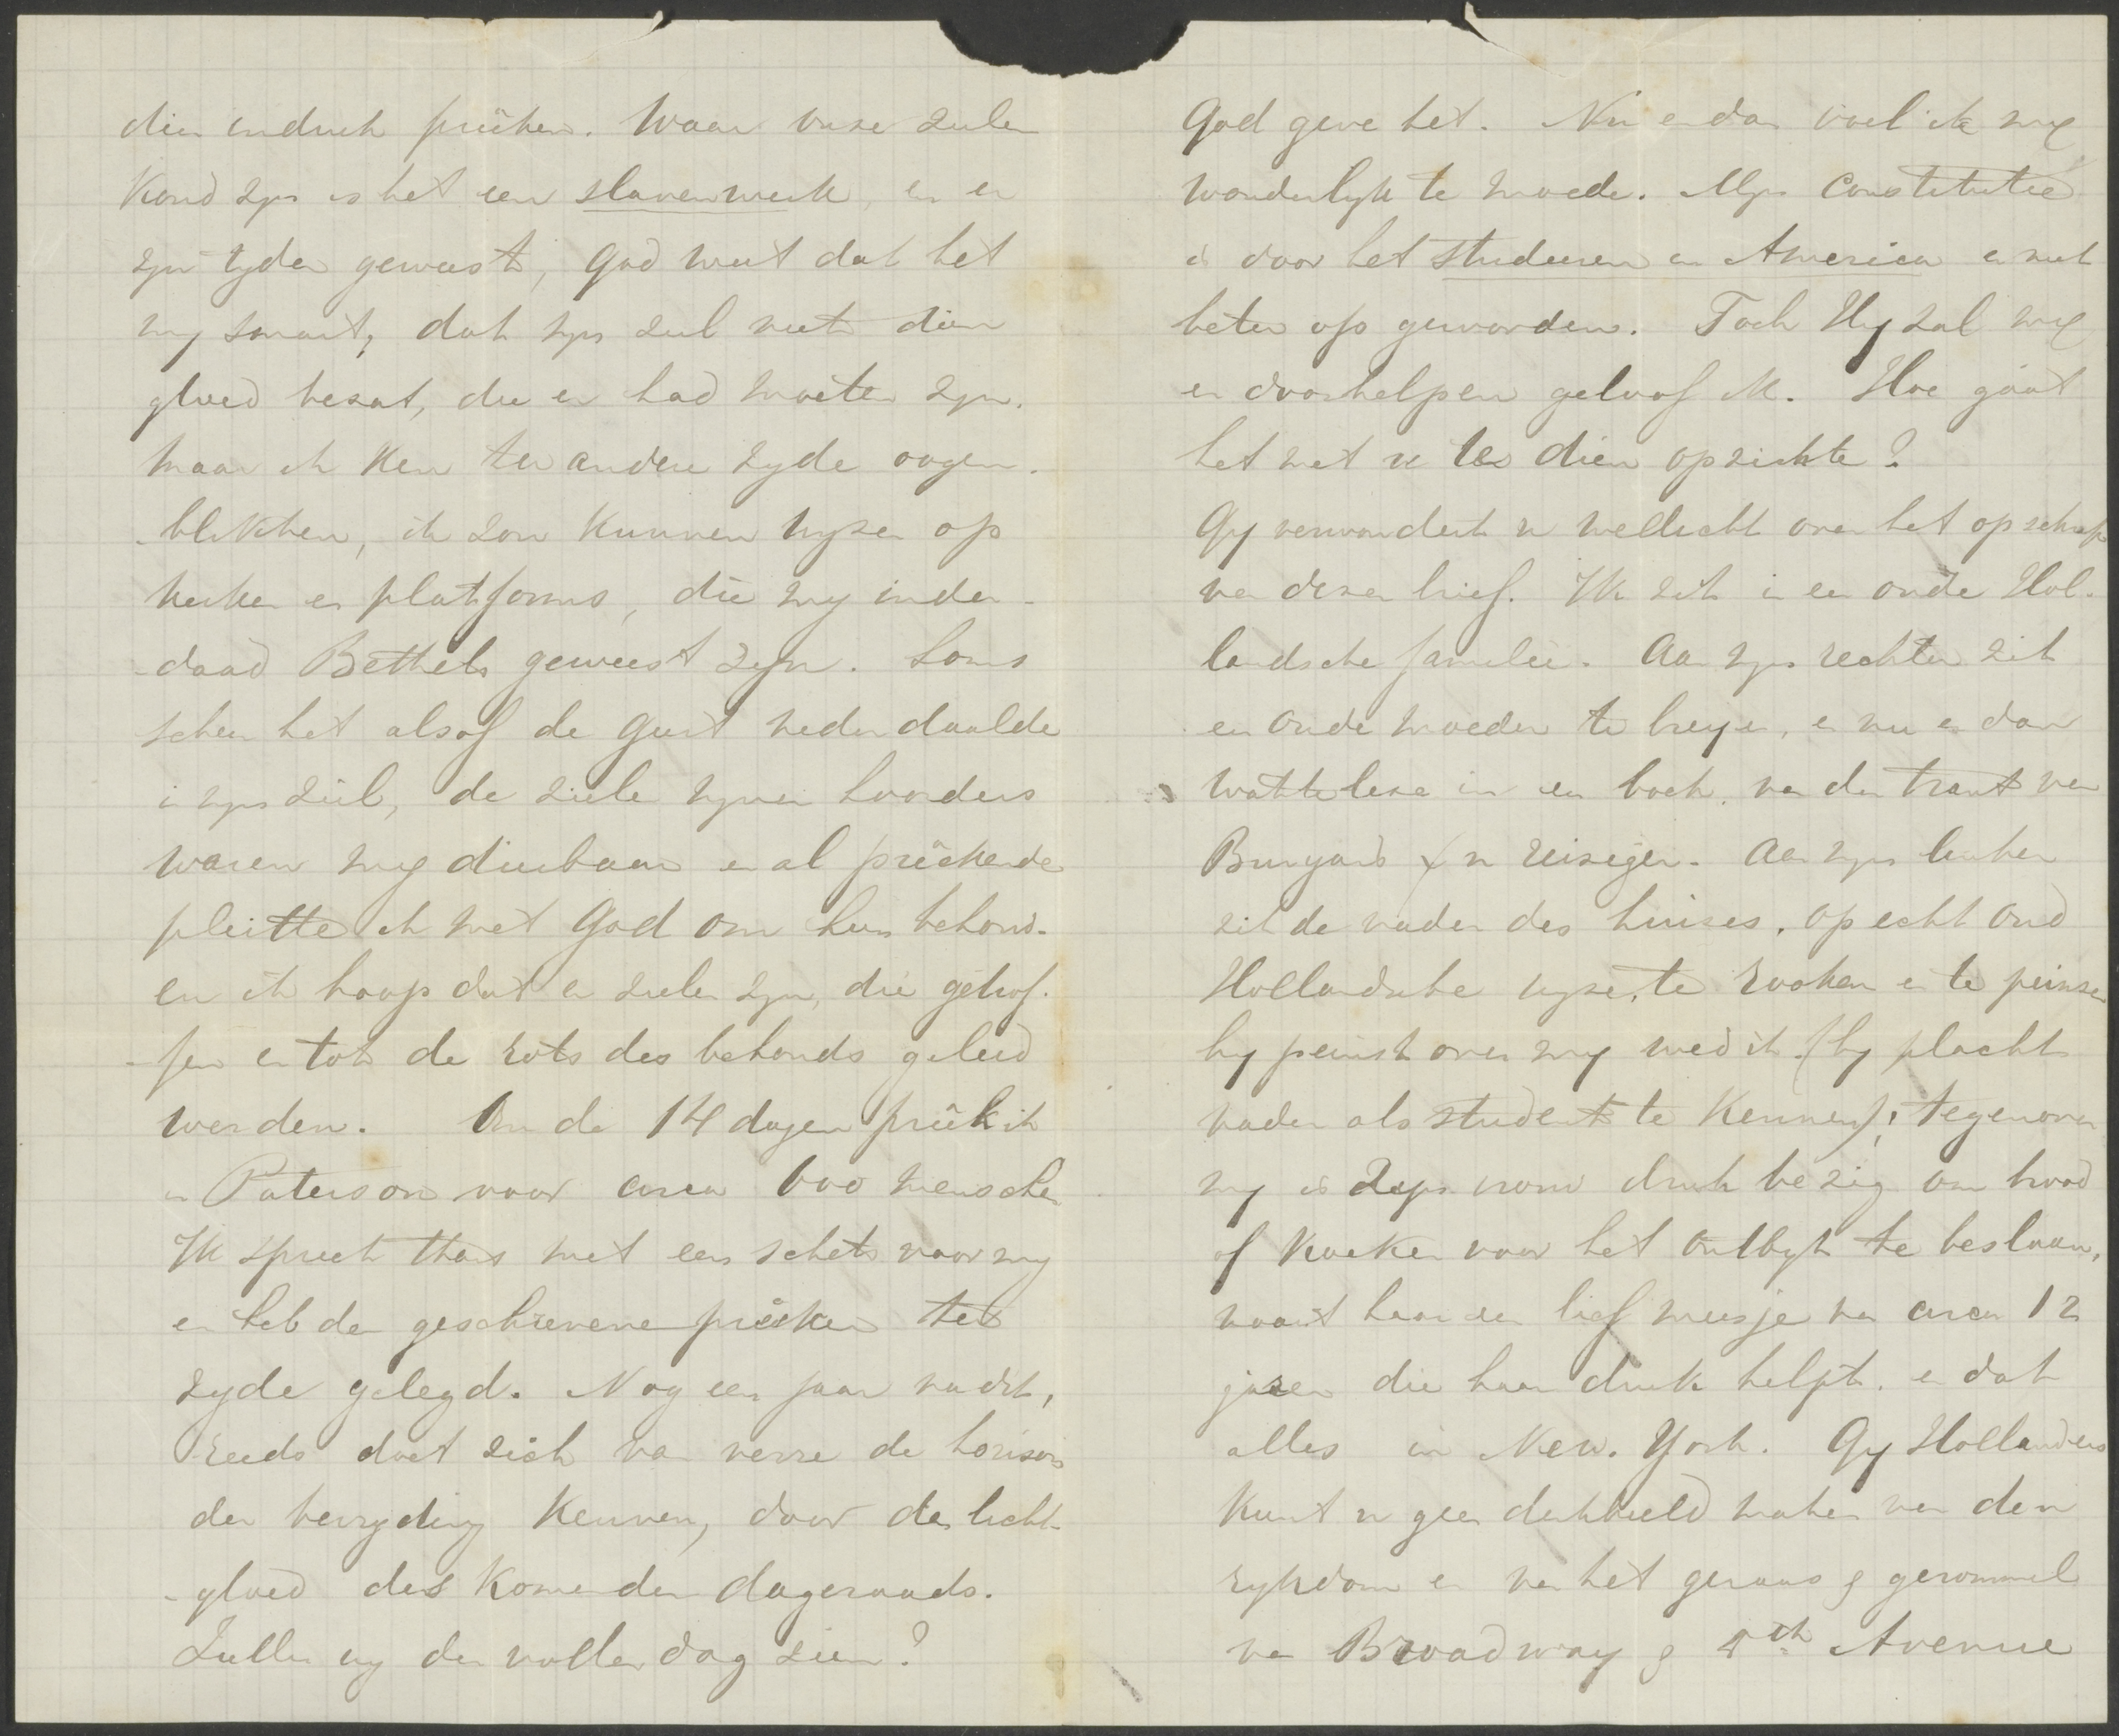 dien indruk preêken. Waar onze zielen
koud zyn is het een slavenwerk, en er
zyn tyden geweest, God weet dat het
my smart, dat myn ziel niet dien
gloed bezat, die er had moeten zyn.
Maar ik ken ter andere zyde oogen-
-blikken, ik zou kunnen wyzen op
kerken en platforms, die my inder-
-daad Bethels geweest zyn. Soms
scheen het alsof de Geest nederdaalde
in myn ziel, de ziele myner hoorders
waren my dierbaar en al preêkende
pleitte ik met God om hun behoud.
en ik hoop dat er zielen zyn, die getrof-
-fen en tot de rots des behouds geleid
werden. Om de 14 dagen preêk ik
in Paterson voor circa 600 menschen
Ik spreek thans met een schets voor my
en heb de geschrevene preêken ter
zyde gelegd. Nog een jaar nacht,
Reeds doet zich van verre de horison
der bevryding kennen, door den licht-
-gloed des komenden dageraads.
Zullen wy den vollen dag zien?
God geve het. Nu en dan voel ik my
wonderlyk te moede. Myn Constitutie
is door het studeeren in America er niet
beter op geworden. Toch Hy zal my
er doorhelpen geloof ik. Hoe gaat
het met u te dien opzichte?
Gy verwondert u wellicht over het opschrift
van dezen brief. Ik zit in een oude Hol-
landsche familie. Aan myn rechter zit
een oude moeder te breyen, en nu en dan
wat te lezen in een boek van den trant van
Bunyan's X'n reiziger. Aan myn linker
zit de vader des huizes, op echt oud
Hollandsche wyze, te rooken en te peinzen
hy peinst over my wed ik (hy placht
vader als student te kennen); tegenover
my is zyn vrouw druk bezig om brood
of koeken voor het ontbyt te beslaan,
naast haar een lief meisje van circa 12
jaren die haar druk helpt. en dat
alles in New. York. Gy Hollanders
kunt u geen denkbeeld maken van den
rykdom en van het geraas & gerommel
van Broadway & 5th Avenue